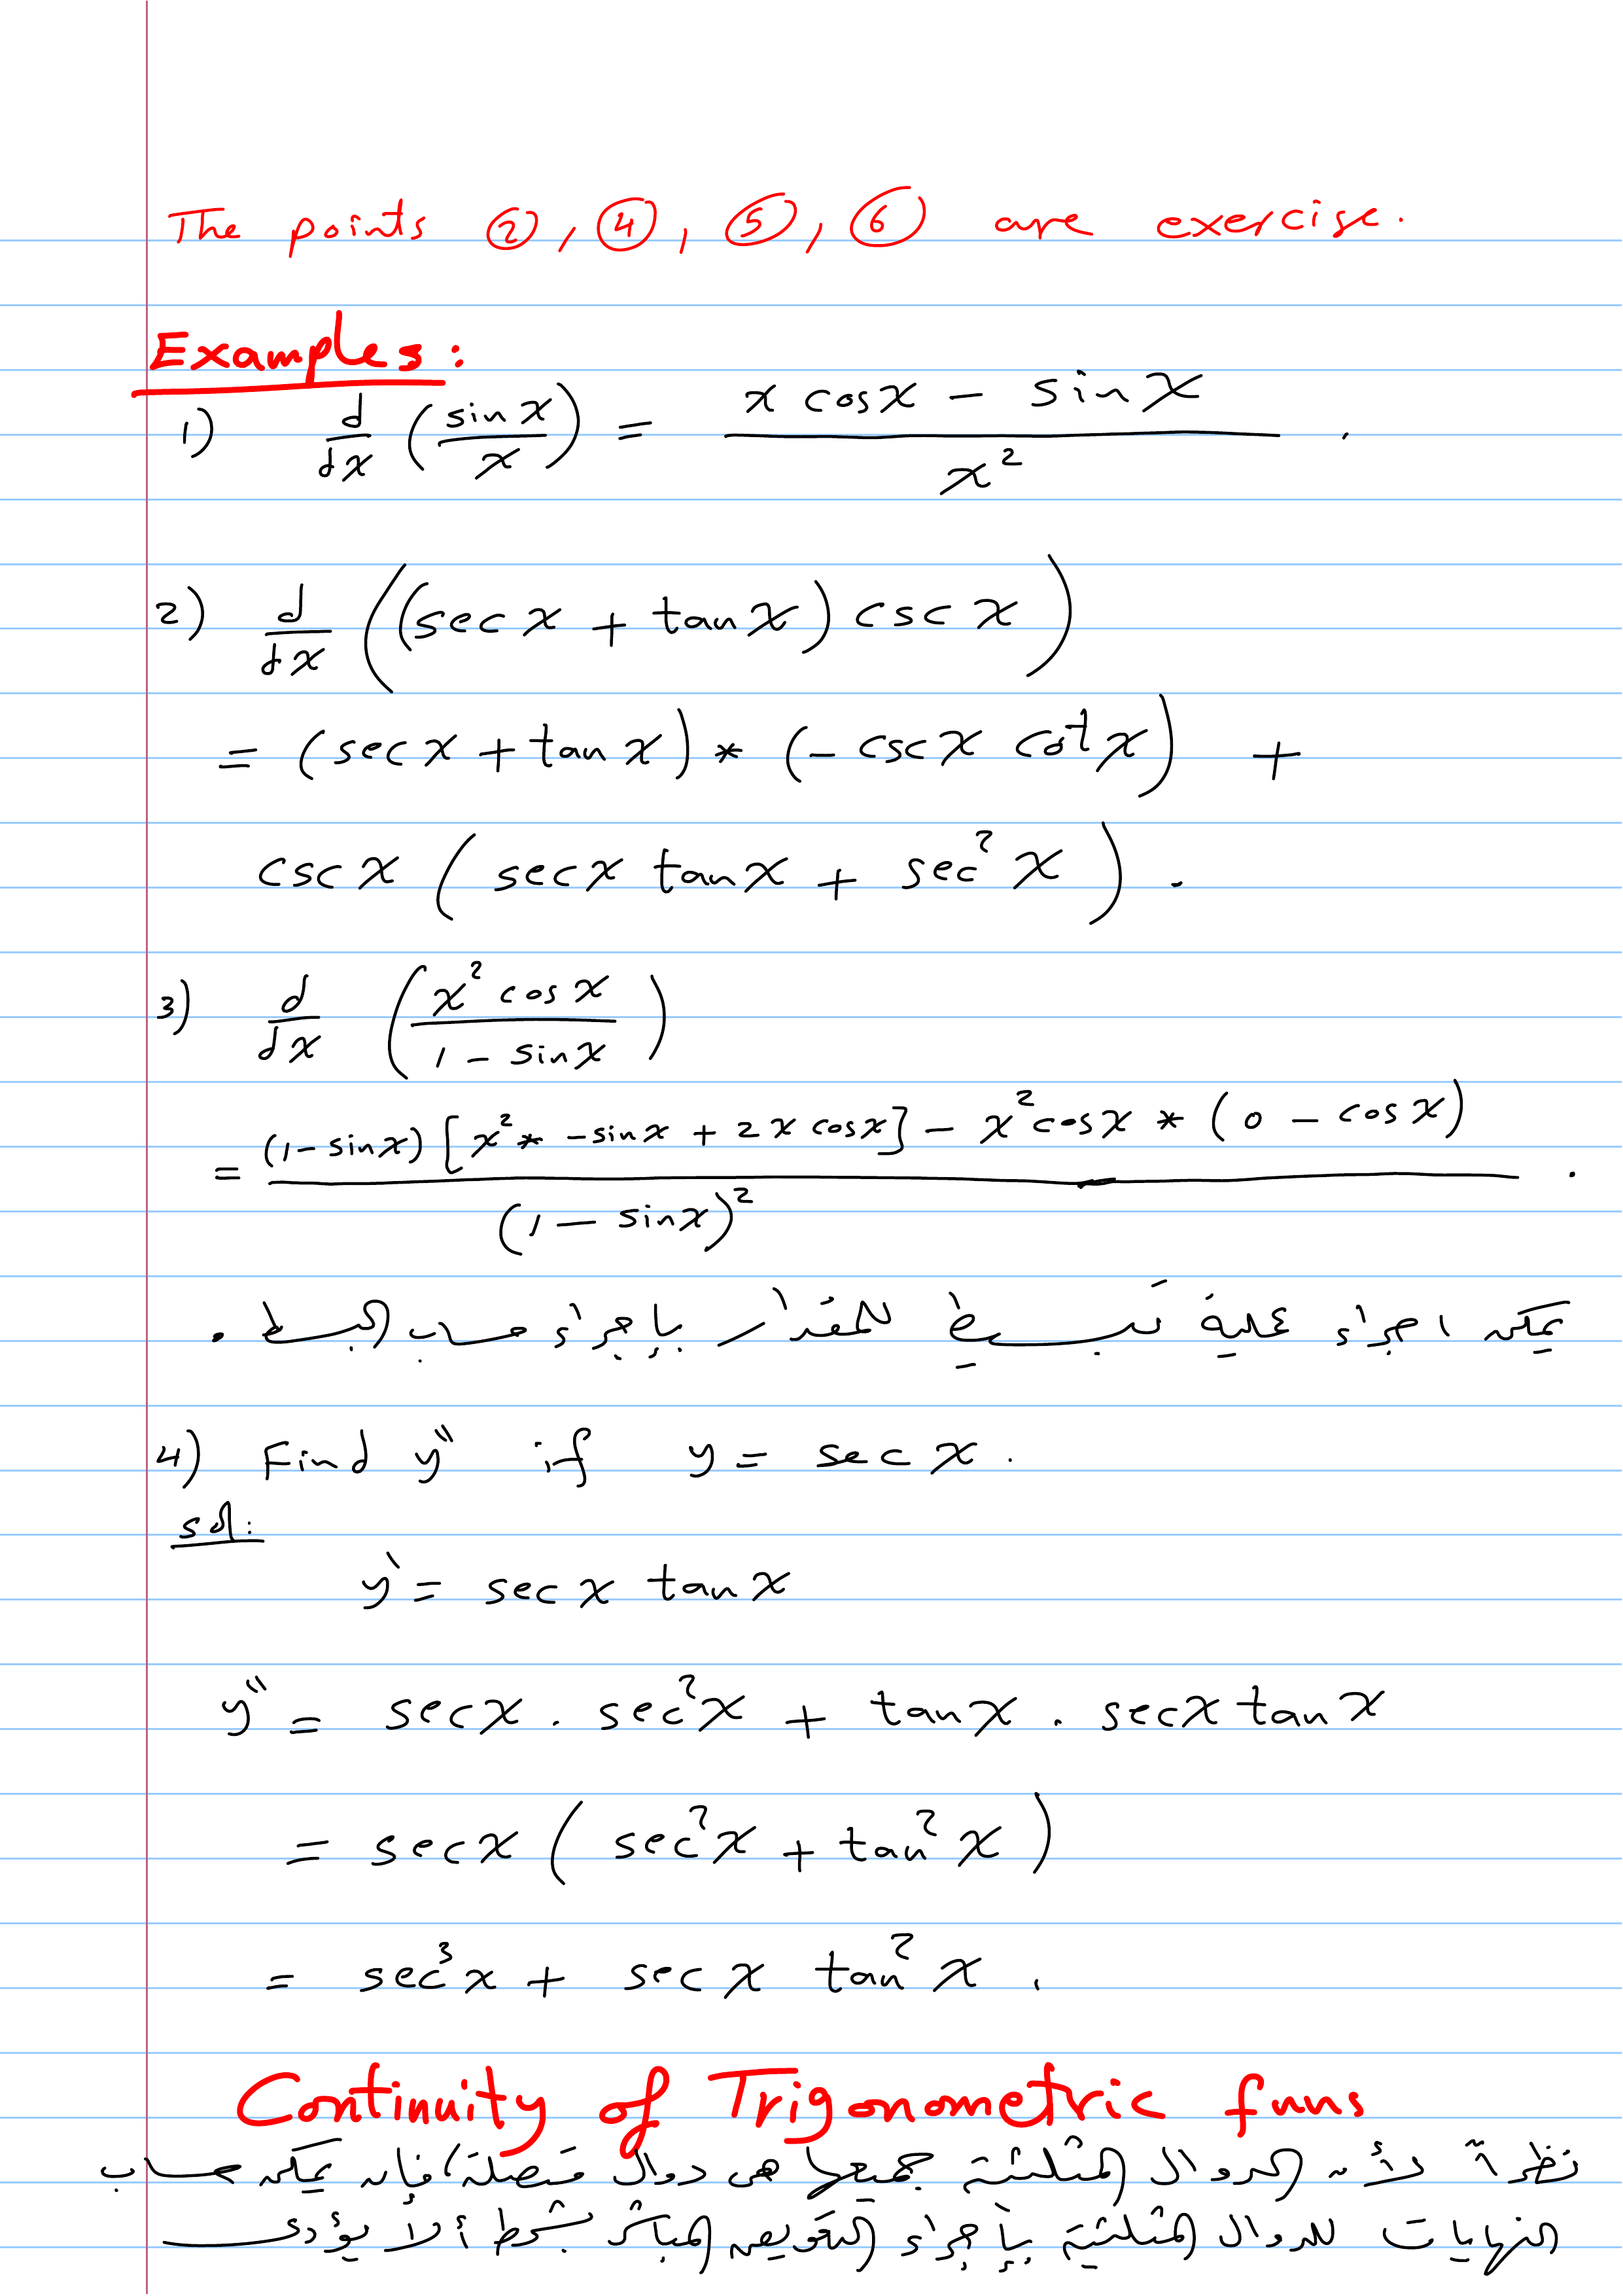 The points ②, ④, ⑤, ⑥ are exercise.
Examples:
1) d/dx (sin x / x) = (x cos x - sin x) / x² .
2) d/dx ((sec x + tan x) csc x)
= (sec x + tan x) * (- csc x cot x) +
csc x (sec x tan x + sec² x) .
3) d/dx (x² cos x / 1 - sin x)
= (1 - sin x) [x² * - sin x + 2 x cos x] - x² cos x * (0 - cos x) / (1 - sin x)² .
يمكن اجراء عملية تبسيط للمقدار بإجراء حساب البسط .
4) Find y" if y = sec x .
sol:
y' = sec x tan x
y" = sec x . sec² x + tan x . sec x tan x
= sec x (sec² x + tan² x)
= sec³ x + sec x tan² x .
Continuity of Trigonometric funs
نظراً لأن الدوال المثلثية جميعها هي دوال متصلة، فإنه يمكن حساب
النهايات للدوال المثلثية بإجراء التعويض المباشر بشرط ألا يؤدي